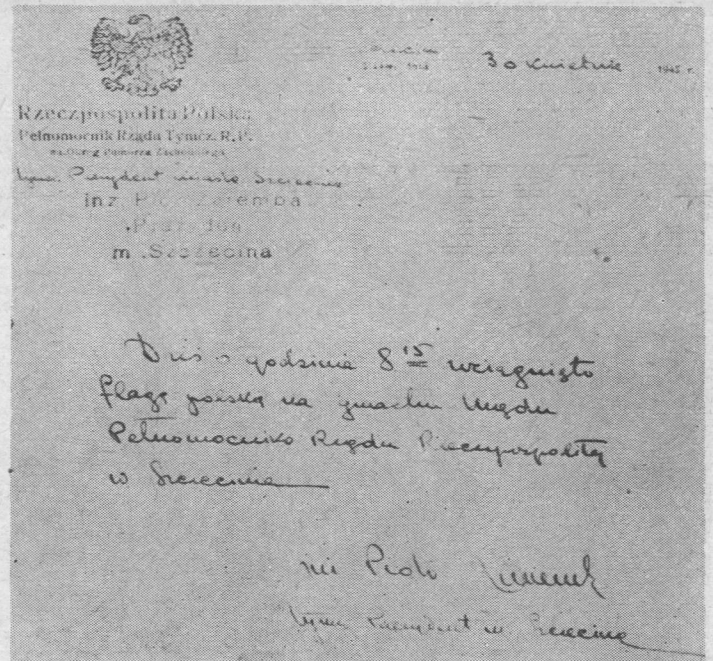 30 kwietnia 1945 r.
Rzeczpospolita Polska
Pełnomocnik Rządu Tymcz. R.P.
na Okręg Pomorza Zachodniego
tymcz. Prezydent miasta Szczecina
inż. Piotr Zaremba
Prezydent
m. Szczecina
Dziś o godzinie 8 15 wciągnięto
flagę polską na gmachu Urzędu
Pełnomocnika Rządu Rzeczypospolitej
w Szczecinie
inż Piotr Zaremba
tymcz Prezydent m. Szczecina